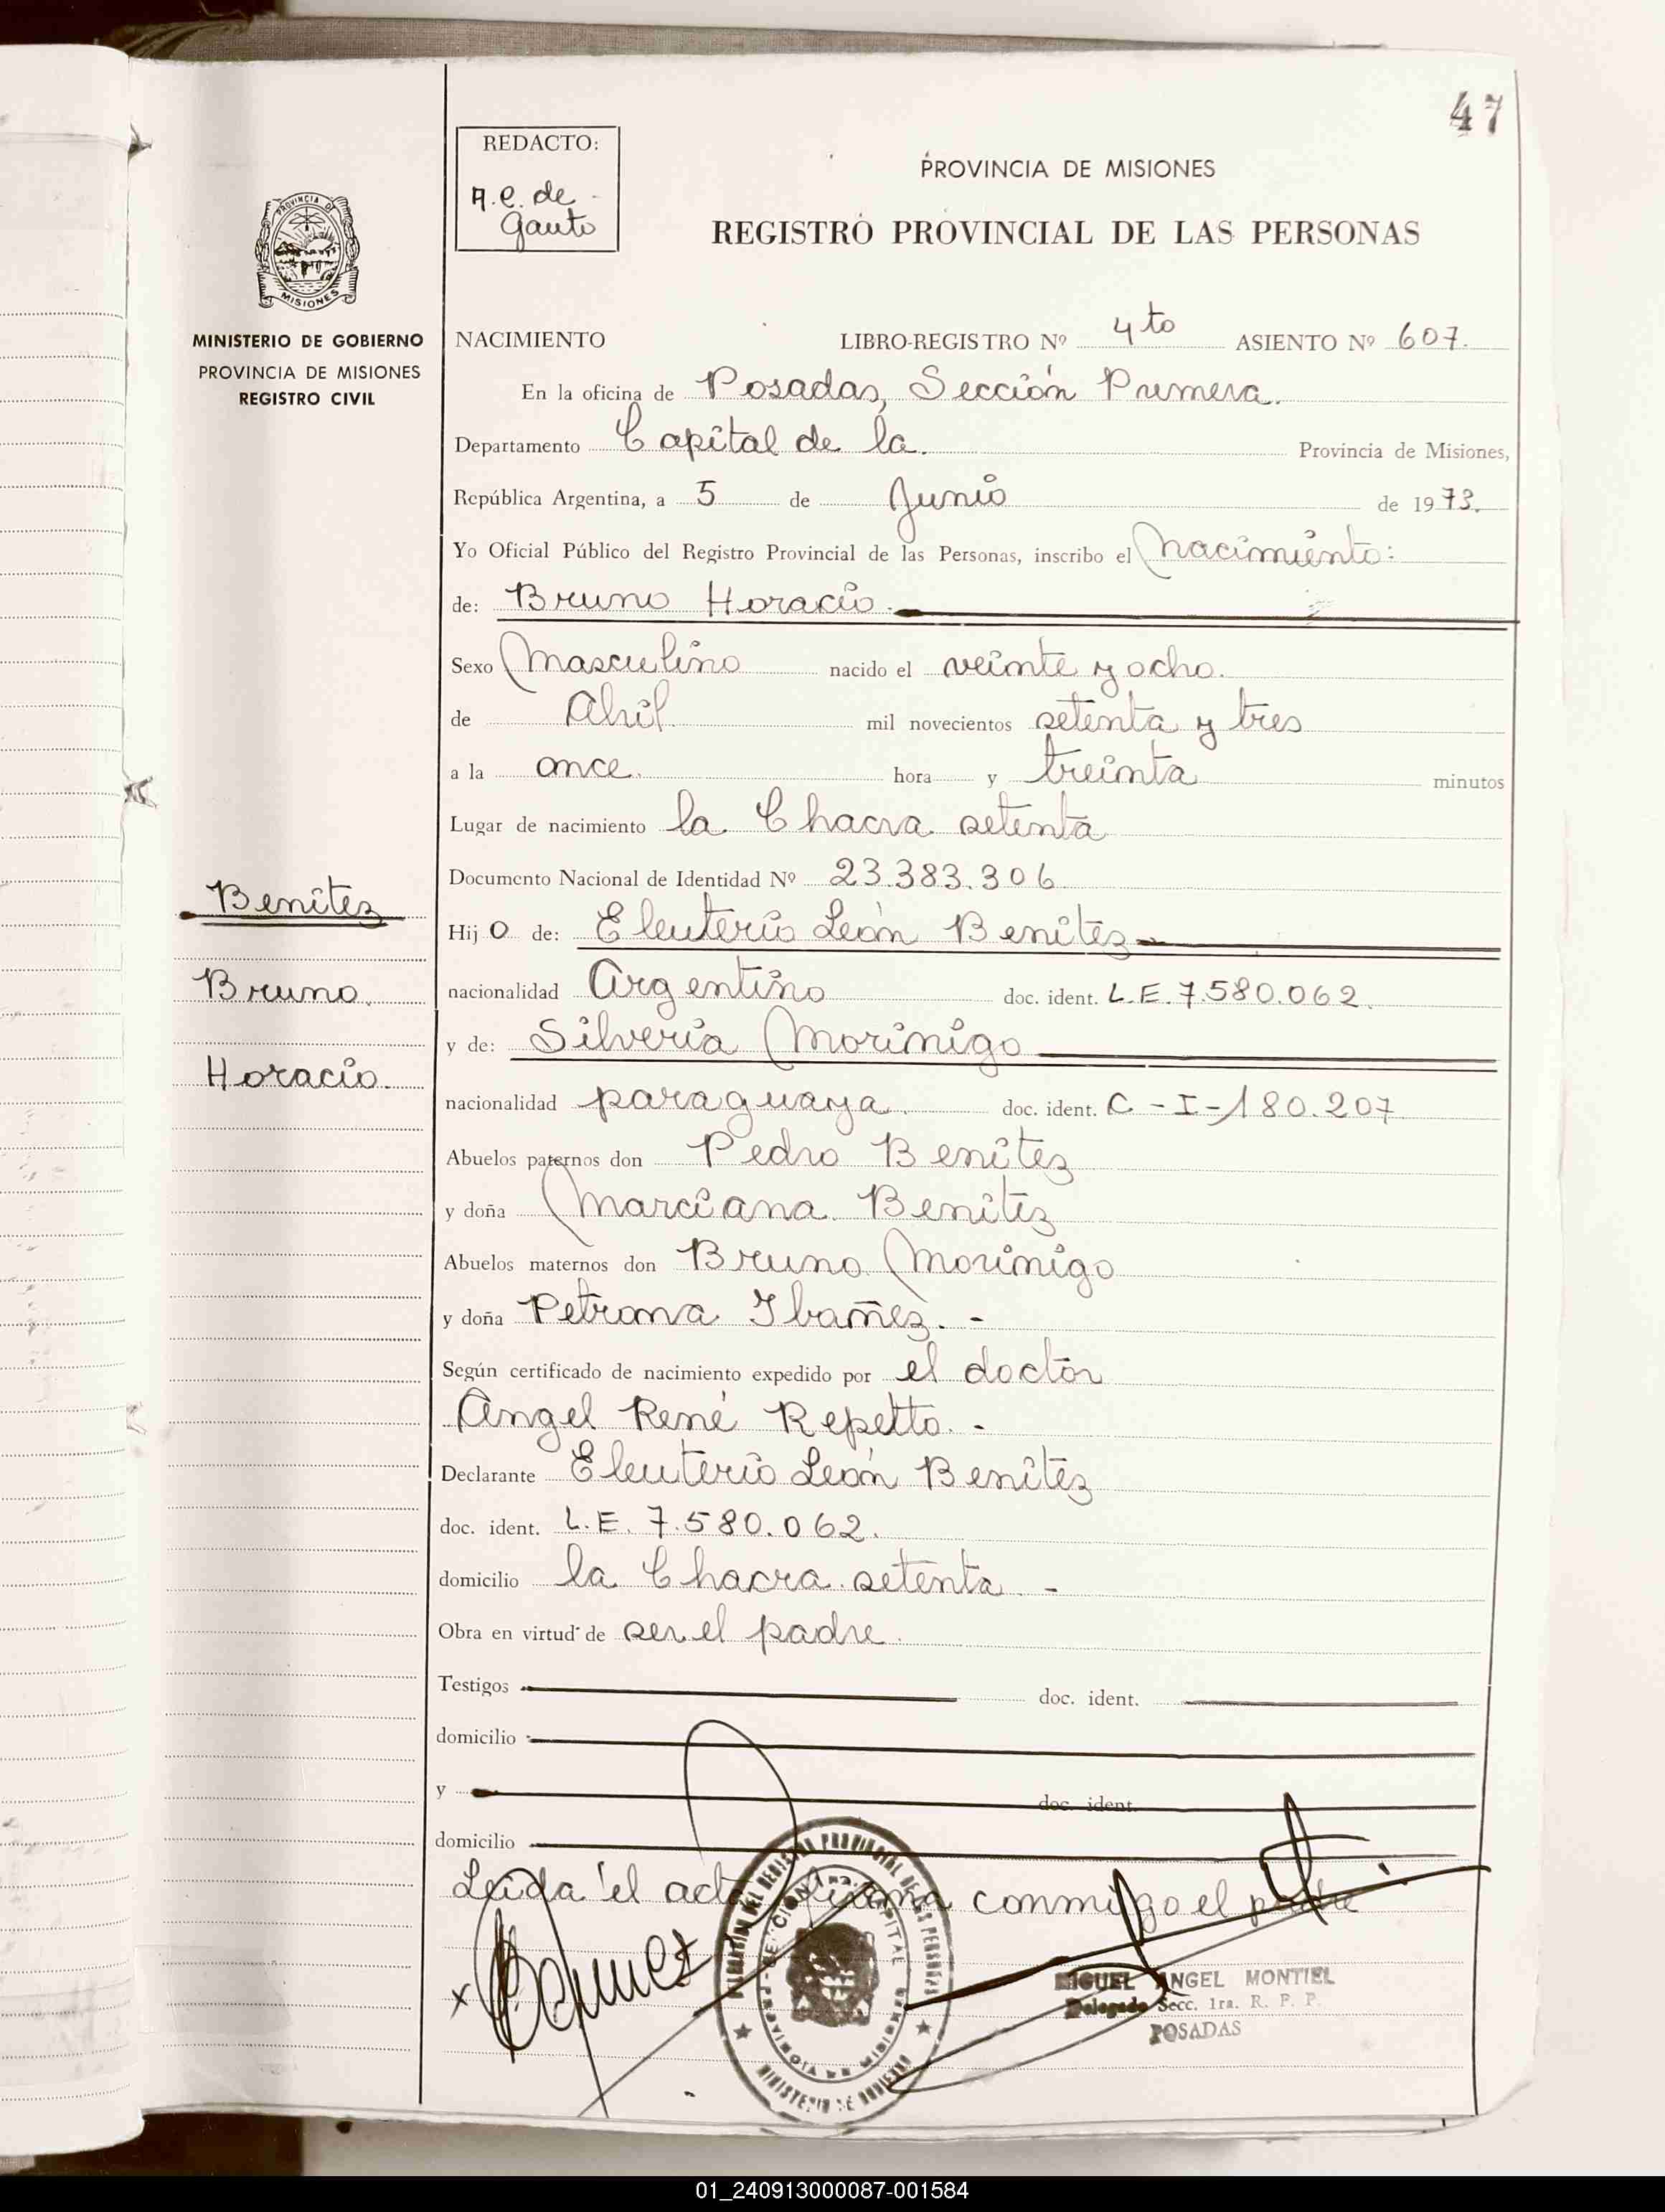 47
REDACTO:
A.E. de
Gauto
PROVINCIA DE MISIONES
REGISTRO PROVINCIAL DE LAS PERSONAS
PROVINCIA DE
MISIONES
MINISTERIO DE GOBIERNO
PROVINCIA DE MISIONES
REGISTRO CIVIL
NACIMIENTO LIBRO-REGISTRO Nº 4to ASIENTO Nº 607.
En la oficina de Posadas, Sección Primera.
Departamento Capital de la. Provincia de Misiones,
República Argentina, a 5 de Junio de 1973.
Yo Oficial Público del Registro Provincial de las Personas, inscribo el Nacimiento:
de: Bruno Horacio.
Sexo Masculino nacido el veinte y ocho.
de Abril mil novecientos setenta y tres
a la once. hora y treinta minutos
Lugar de nacimiento la Chacra setenta
Documento Nacional de Identidad Nº 23.383.306
Benítez
Hijo de: Eleuterio León Benítez
Bruno.
nacionalidad Argentino doc. ident. L.E. 7.580.062.
y de: Silveria Morinigo
Horacio.
nacionalidad paraguaya. doc. ident. C-I-180.207
Abuelos paternos don Pedro Benítez
y doña Marciana Benítez
Abuelos maternos don Bruno Morinigo
y doña Petrona Ibañez. -
Según certificado de nacimiento expedido por el doctor
Angel René Repetto. -
Declarante Eleuterio León Benítez
doc. ident. L.E. 7.580.062.
domicilio la Chacra setenta -
Obra en virtud de ser el padre.
Testigos doc. ident.
domicilio
y doc. ident.
domicilio
Leída el acta firma conmigo el padre
x
MIGUEL ANGEL MONTIEL
Delegado Secc. 1ra. R. P. P.
POSADAS
PROVINCIA DE MISIONES
MINISTERIO DE GOBIERNO
01_240913000087-001584